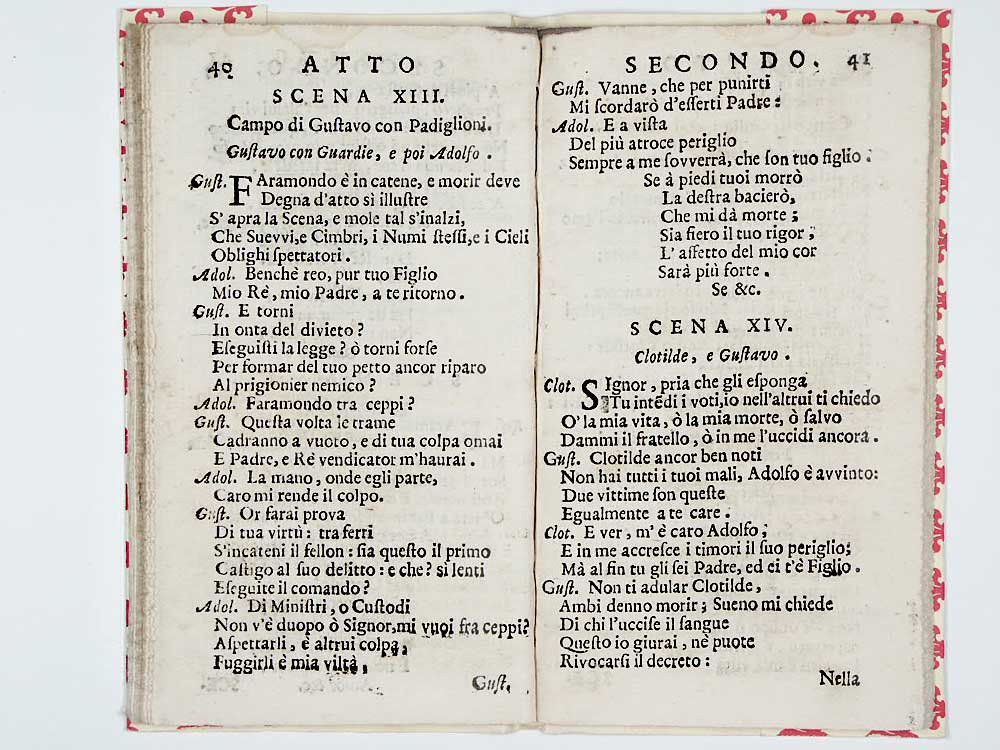 40 ATTO
SCENA XIII.
Campo di Gustavo con Padiglioni.
Gustavo con Guardie, e poi Adolfo.
Gust. FAramondo è in catene, e morir deve
Degna d'atto sì illustre
S'apra la Scena, e mole tal s'inalzi,
Che Suevvi, e Cimbri, i Numi stessi, e i Cieli
Oblighi spettatori.
Adol. Benchè reo, pur tuo Figlio
Mio Rè, mio Padre, a te ritorno.
Gust. E torni
In onta del divieto?
Eseguisti la legge? ò torni forse
Per formar del tuo petto ancor riparo
Al prigionier nemico?
Adol. Faramondo tra ceppi?
Gust. Questa volta le trame
Cadranno a vuoto, e di tua colpa omai
E Padre, e Rè vendicator m'haurai.
Adol. La mano, onde egli parte,
Caro mi rende il colpo.
Gust. Or farai prova
Di tua virtù: tra ferri
S'incateni il fellon: sia questo il primo
Castigo al suo delitto: e che? sì lenti
Eseguite il comando?
Adol. Di Ministri, o Custodi
Non v'è duopo ò Signor, mi vuoi fra ceppi?
Aspettarli, è altrui colpa,
Fuggirli è mia viltà,
Gust.
SECONDO. 41
Gust. Vanne, che per punirti
Mi scordarò d'esserti Padre:
Adol. E a vista
Del più atroce periglio
Sempre a me sovverrà, che son tuo figlio.
Se à piedi tuoi morrò
La destra bacierò,
Che mi dà morte;
Sia fiero il tuo rigor;
L'affetto del mio cor
Sarà più forte.
Se &c.
SCENA XIV.
Clotilde, e Gustavo.
Clot. SIgnor, pria che gli esponga
Tu intēdi i voti, io nell'altrui ti chiedo
O' la mia vita, ò la mia morte, ò salvo
Dammi il fratello, ò in me l'uccidi ancora.
Gust. Clotilde ancor ben noti
Non hai tutti i tuoi mali, Adolfo è avvinto:
Due vittime son queste
Egualmente a te care.
Clot. E ver, m'è caro Adolfo;
E in me accresce i timori il suo periglio;
Mà al fin tu gli sei Padre, ed ei t'è Figlio.
Gust. Non ti adular Clotilde,
Ambi denno morir; Sueno mi chiede
Di chi l'uccise il sangue
Questo io giurai, nè puote
Rivocarsi il decreto:
Nella